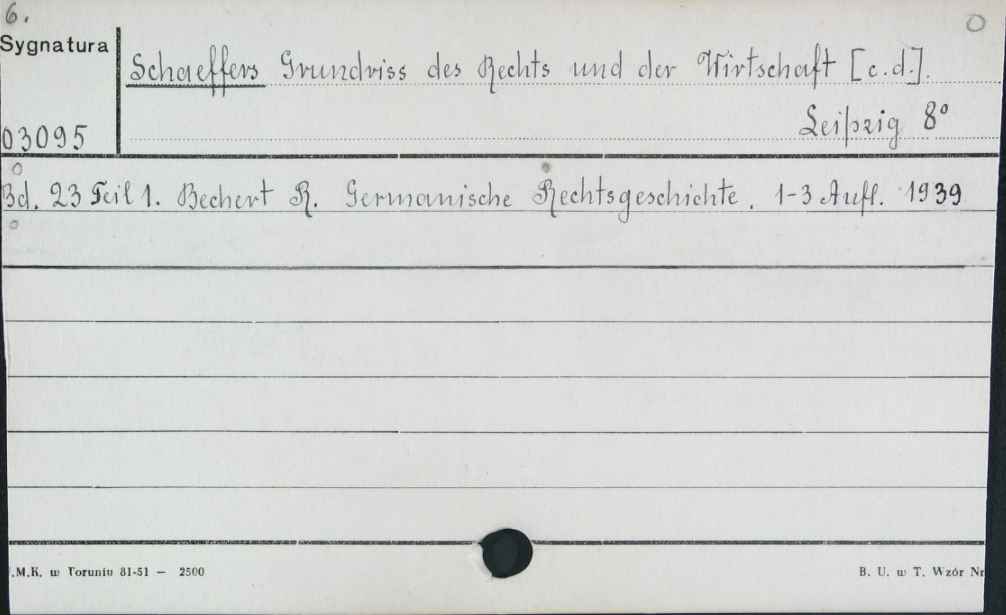 6.
Sygnatura
Schaeffers Grundriss des Rechts und der Wirtschaft [c.d.].
Leipzig 8°
03095
Bd. 23 Teil 1. Bechert R. Germanische Rechtsgeschichte. 1-3 Aufl. 1939
.M.K. w Toruniu 81-51 — 2500
B. U. w T. Wzór Nr